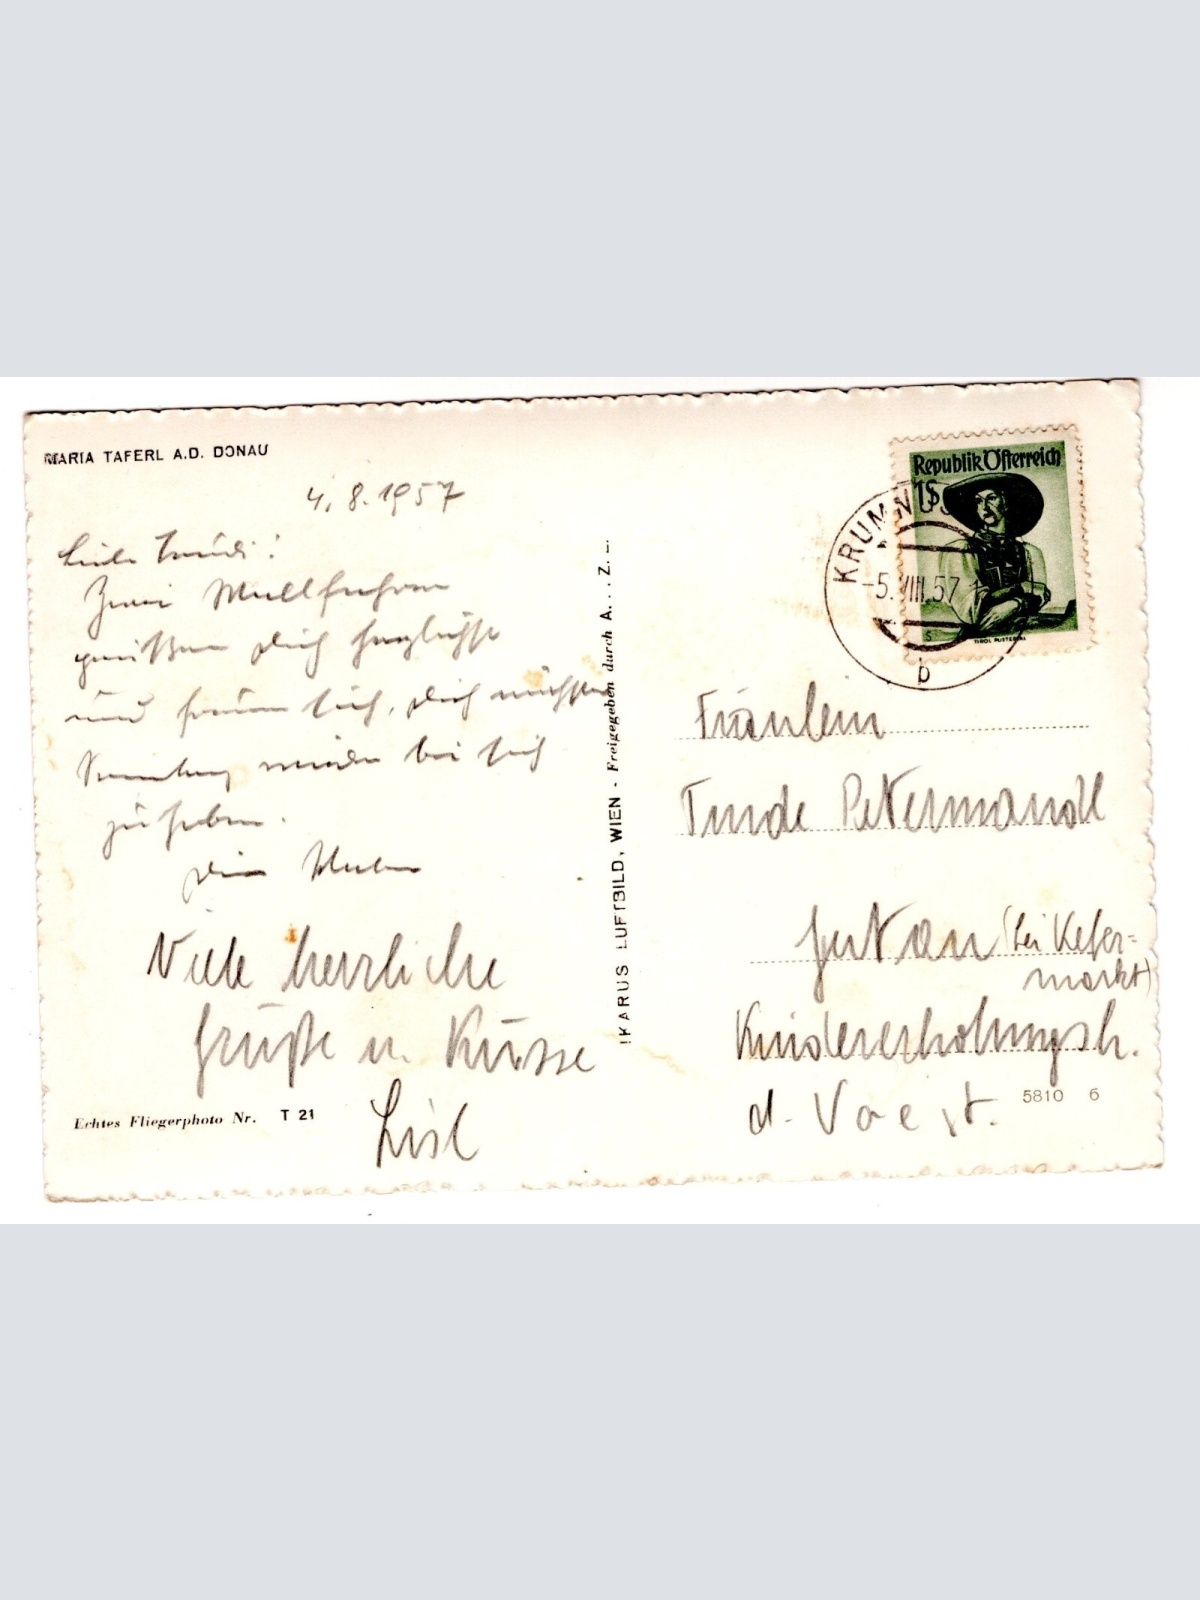 MARIA TAFERL A.D. DONAU
4. 8. 1957
Liebe Trudi!
Zwei Wallfahrer
grüßen Dich herzlichst
und freuen sich, Dich nächsten
Sonntag wieder bei sich
zu haben.
Viele herzliche
Grüße u. Küsse
Lisl
Echtes Fliegerphoto Nr. T 21
IKARUS LUFTBILD, WIEN - Freigegeben durch A. . . Z.
Republik Österreich
1S
TIROL PUSTERTAL
KRUMN
-5.VIII.57
b
Fräulein
Trude Petermandl
Gutau (bei Kefer=
markt)
Kindererholungsh.
d. Voest.
5810 6